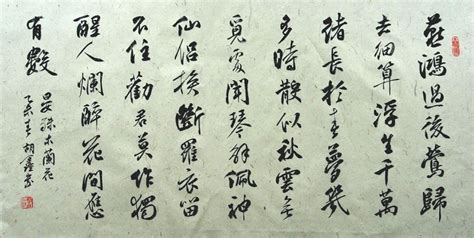 燕鴻過後鶯歸
去細算浮生千萬
緒長於春夢幾
多時散似秋雲无
覓處聞琴解佩神
仙侶挨斷羅衣留
不住勸君莫作獨
醒人爛醉花間應
有數
晏殊木蘭花
胡鑫